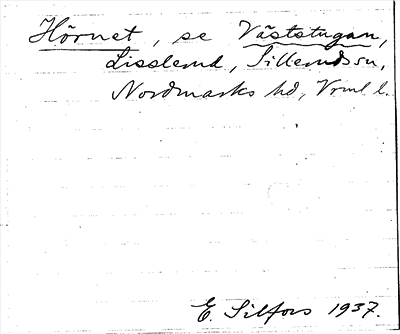 Hörnet, se Väststugan,
Lisslerud, Sillerudssn,
Nordmarks hd, Vrml l.
E. Silfors 1937.